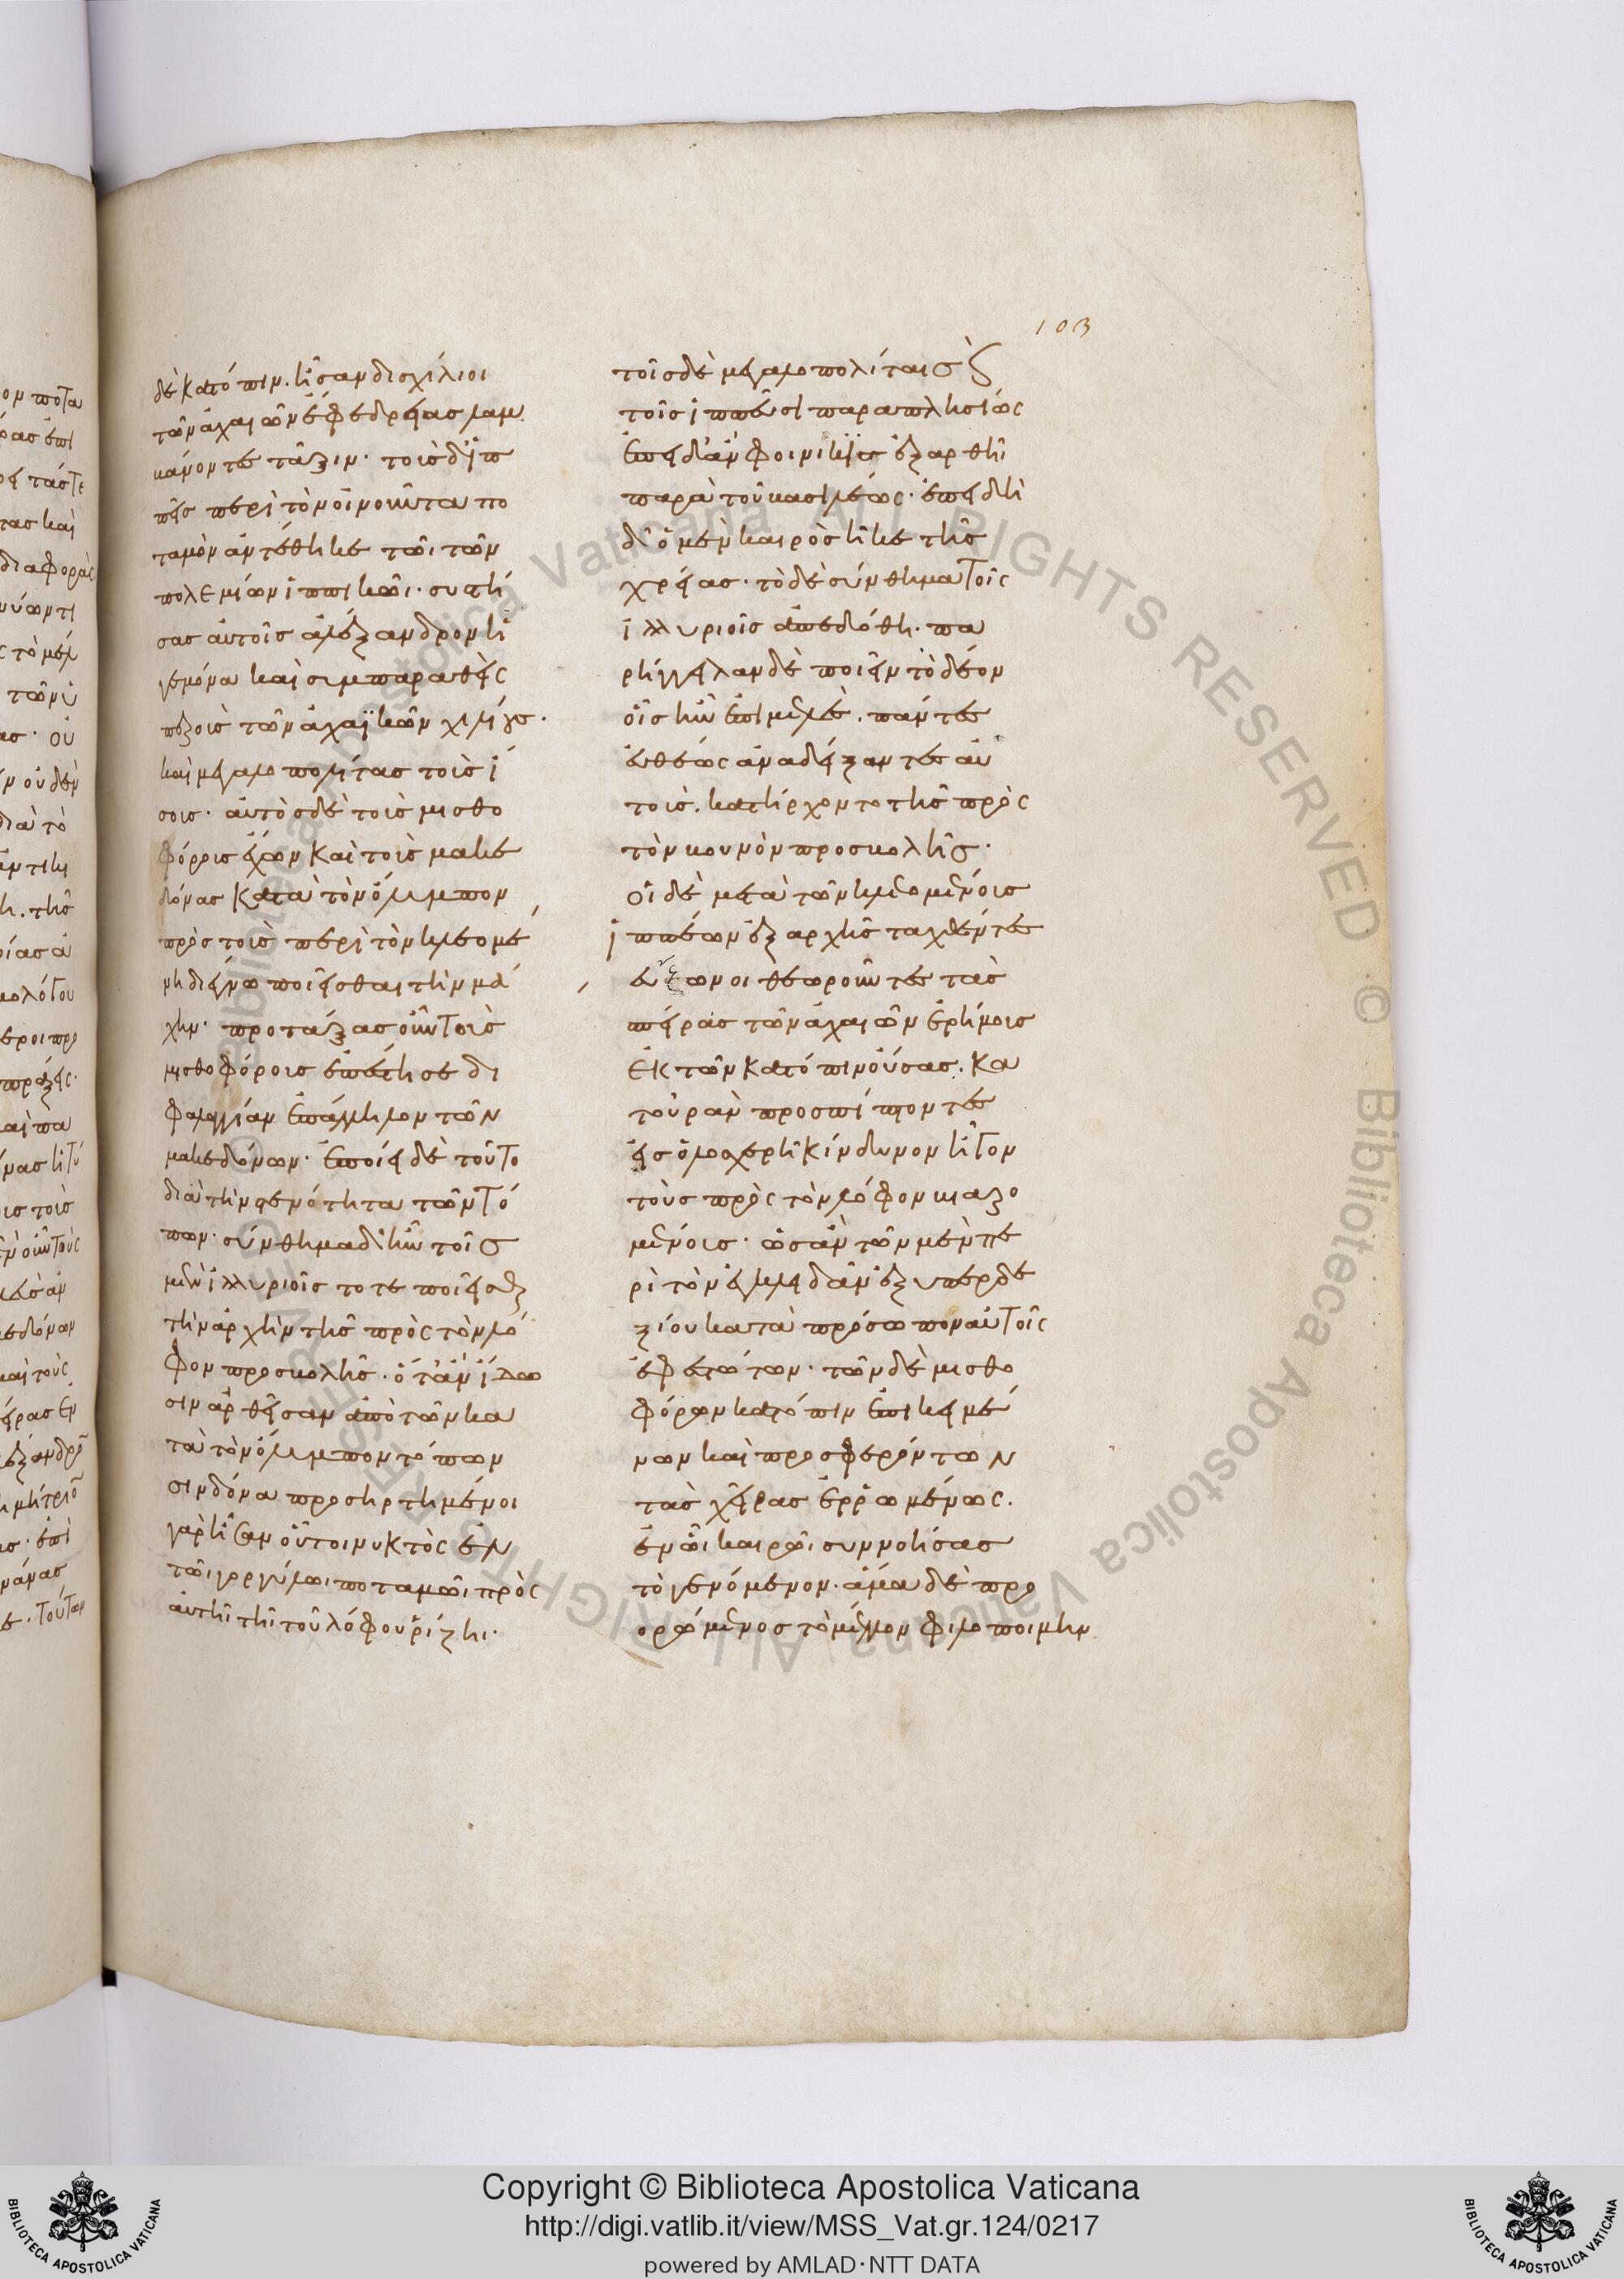 103
δὲ κατόπιν. ἦσαν δισχίλιοι
τῶν ἀχαιῶν ἐφεδρείας λαμ
βάνοντες τάξιν· τοὺς δ' ἱπ
πεῖς περὶ τὸν οἰνοῦντα πο
ταμὸν ἀντέθηκε τῶι τῶν
πολεμίων ἱππικῶι· συστή
σας αὐτοῖς ἀλέξανδρον ἡ
γεμόνα καὶ συμπαραθεὶς
πεζοὺς τῶν ἀχαϊκῶν χιλίους·
καὶ μεγαλοπολίτας τοὺς ἴ
σους· αὐτὸς δὲ τοὺς μισθο
φόρους ἔχων καὶ τοὺς μακε
δόνας κατὰ τὸν ὄλυμπον
πρὸς τοὺς περὶ τὸν κλεομέ
νη διέγνω ποιεῖσθαι τὴν μά
χην· προτάξας οὖν τοὺς
μισθοφόρους ἐπέστησε δι
φαλαγγίαν ἐπάλληλον τῶν
μακεδόνων· ἐποίει δὲ τοῦτο
διὰ τὴν στενότητα τῶν τό
πων· σύνθημα δ' ἦν τοῖς
μὲν ἰλλυριοῖς τότε ποιεῖσθαι
τὴν ἀρχὴν τῆς πρὸς τὸν λό
φον προσβολῆς· ὅταν ἴδω
σιν ἀρθεῖσαν ἀπὸ τῶν κα
τὰ τὸν ὄλυμπον τόπων
σινδόνα προσηρτημένοι
γὰρ ἦσαν οὗτοι νυκτὸς ἐν
τῶι γοργύλωι ποταμῶι πρὸς
αὐτῆι τῆι τοῦ λόφου ῥίζηι·
τοῖς δὲ μεγαλοπολίταις καὶ
τοῖς ἱππεῦσι παραπλησίως
ἐπειδὰν φοινικὶς ἐξαρθῆι
παρὰ τοῦ βασιλέως· ἐπειδὴ
δ' ὁ μὲν καιρὸς ἧκε τῆς
χρείας· τὸ δὲ σύνθημα τοῖς
ἰλλυριοῖς ἀπεδόθη· πα
ρήγγειλαν δὲ ποιεῖν τὸ δέον
οἷς ἦν ἐπιμελὲς· πάντες
εὐθέως ἀναδείξαντες αὑ
τοὺς· κατήρχοντο τῆς πρὸς
τὸν βουνὸν προσβολῆς·
οἱ δὲ μετὰ τῶν κλεομένους
ἱππέων ἐξ ἀρχῆς ταχθέντες
εὔζωνοι θεωροῦντες τὰς
σπείρας τῶν ἀχαιῶν ἐρήμους
ἐκ τῶν κατόπιν οὔσας· κα
τ' οὐρὰν προσπίπτοντες
εἰς ὁλοσχερῆ κίνδυνον ἦγον
τοὺς πρὸς τὸν λόφον βιαζο
μένους· ὡς ἂν τῶν μὲν πε
ρὶ τὸν εὐκλείδαν ἐξ ὑπερδε
ξίου κατὰ πρόσωπον αὐτοῖς
ἐφεστώτων· τῶν δὲ μισθο
φόρων κατόπιν ἐπικειμέ
νων καὶ προσφερόντων
τὰς χεῖρας ἐρρωμένως.
ἐν ὧι καιρῶι συννοήσας
τὸ γενόμενον· ἅμα δὲ προ
ορώμενος τὸ μέλλον φιλοποιμὴν
Copyright © Biblioteca Apostolica Vaticana
http://digi.vatlib.it/view/MSS_Vat.gr.124/0217
powered by AMLAD·NTT DATA